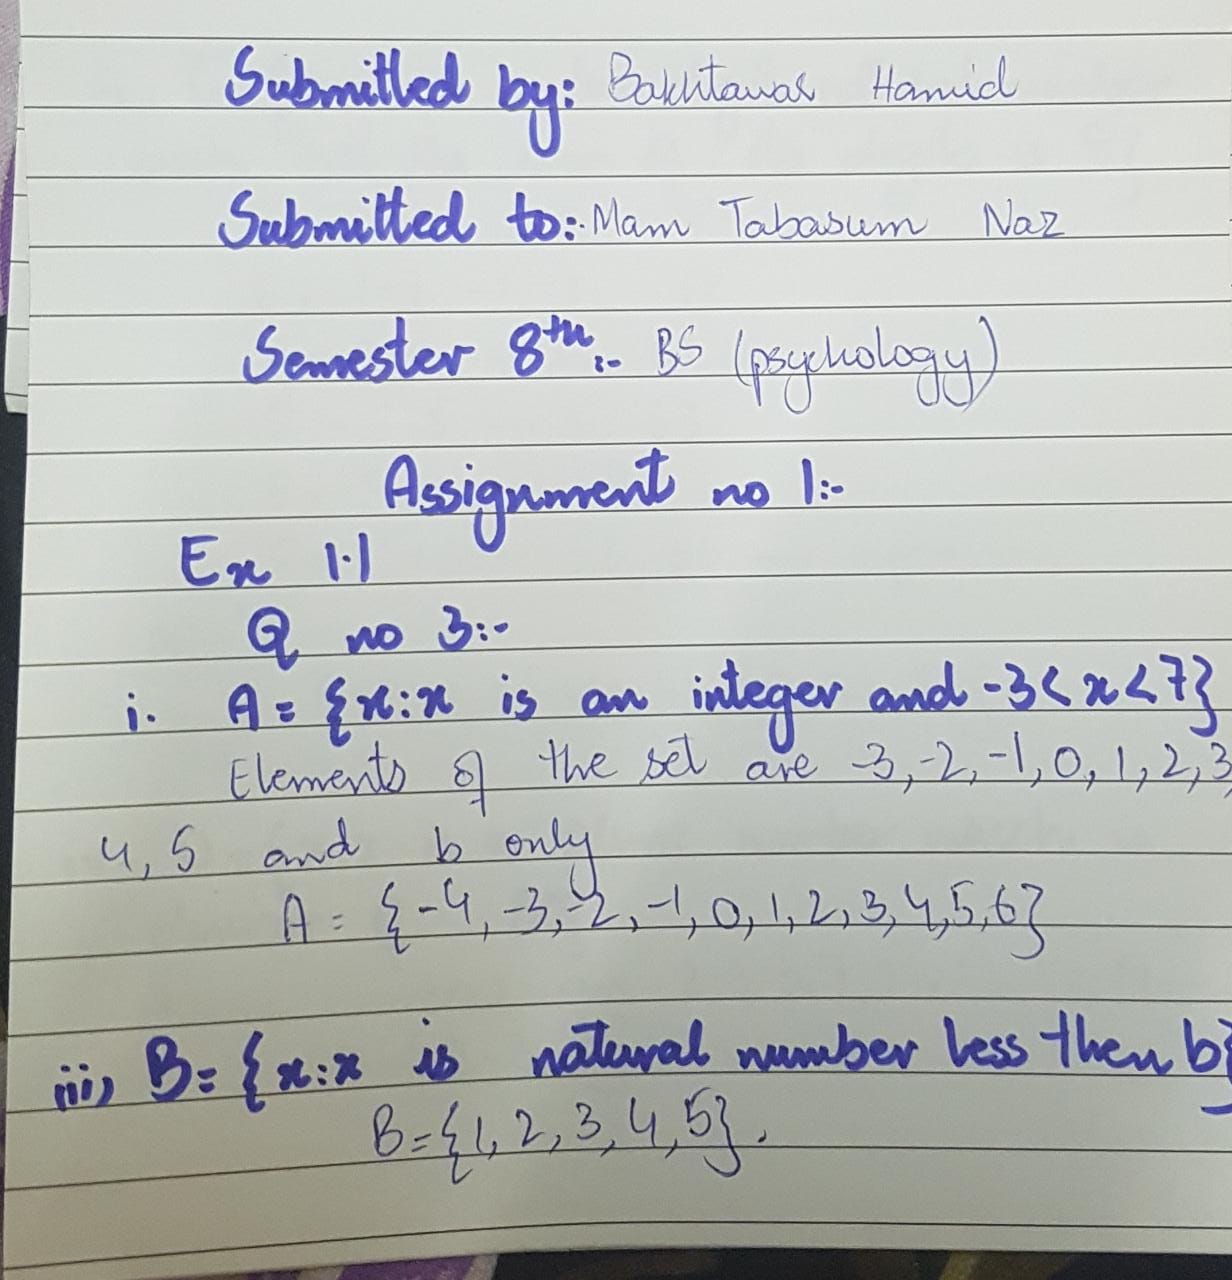 Submitted by: Bakhtawar Hamid
Submitted to:- Mam Tabasum Naz
Semester 8th:- BS (psychology)
Assignment no 1:-
Ex 1.1
Q no 3:-
i. A= {x:x is an integer and -3<x<7}
Elements of the set are -3,-2,-1,0,1,2,3,
4,5 and 6 only
A = {-4,-3,-2,-1,0,1,2,3,4,5,6}
iii) B= {x:x is natural number less then 6}
B={1,2,3,4,5}.